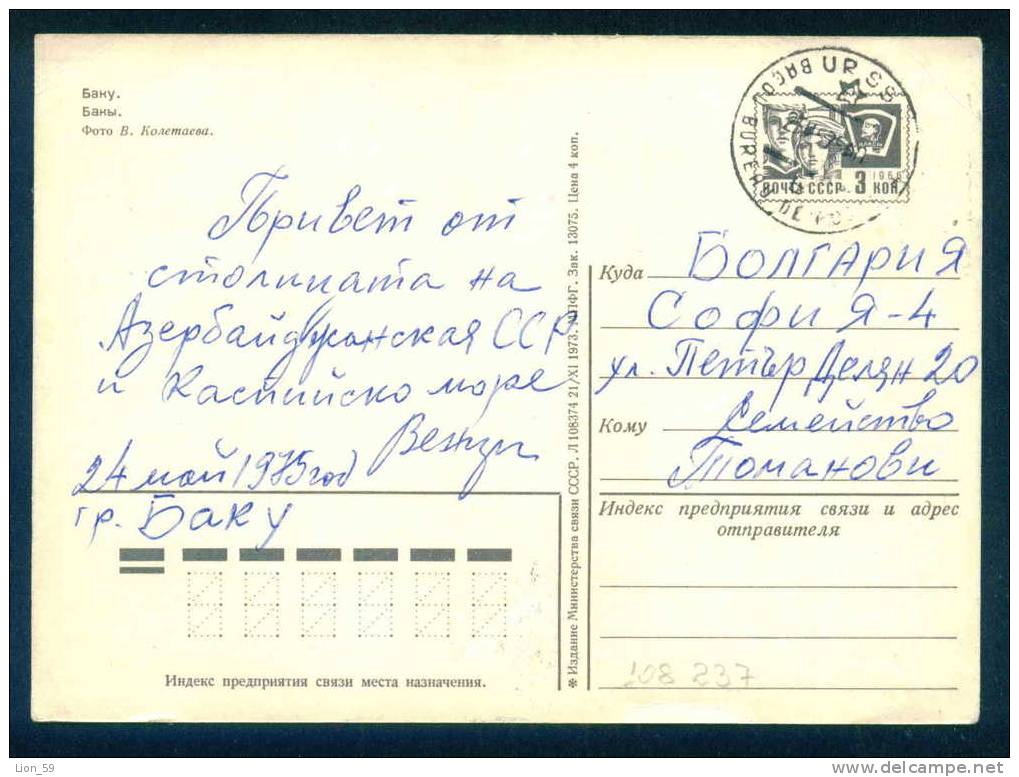 Баку.
Бакы.
Фото В. Колетаева.
Привет от
столицата на
Азербайджанская ССР
и Каспийско море
24 май 1975 год
гр. Баку
Индекс предприятия связи места назначения.
✻ Издание Министерства связи СССР. Л 108374 21/XI 1973. Зак. 13075. Цена 4 коп.
URSS
BAGOU BUREAU DE
ПОЧТА СССР. 3 КОП.
1966
Куда БОЛГАРИЯ
СОФИЯ-4
ул. Петър Делян 20
Кому Семейство
Томанови
Индекс предприятия связи и адрес
отправителя
108 237
Lion_59
www.delcampe.net